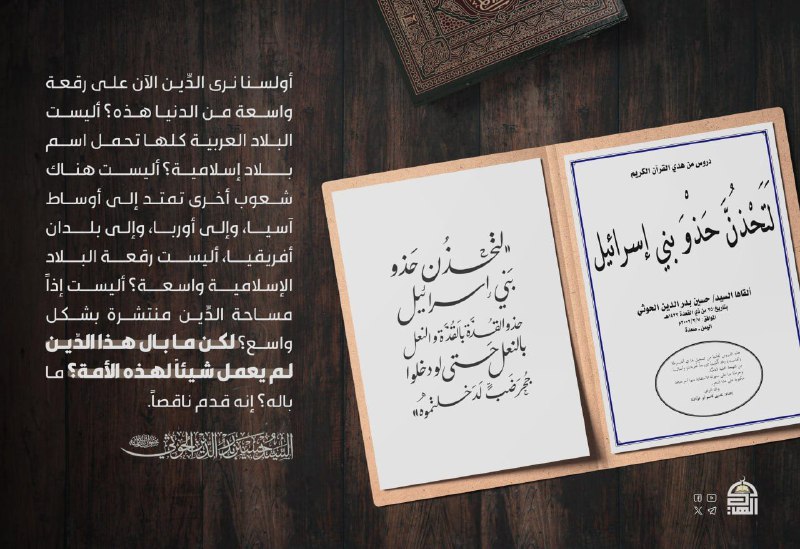 أولسنا نرى الدِّين الآن على رقعة
واسعة من الدنيا هذه؟ أليست
البلاد العربية كلها تحمل اسم
بلاد إسلامية؟ أليست هناك
شعوب أخرى تمتد إلى أوساط
آسيا، وإلى أوربا، وإلى بلدان
أفريقيا، أليست رقعة البلاد
الإسلامية واسعة؟ أليست إذاً
مساحة الدِّين منتشرة بشكل
واسع؟ لكن ما بال هذا الدِّين
لم يعمل شيئاً لهذه الأمة؟ ما
باله؟ إنه قدم ناقصاً.
السيد حسين بدر الدين الحوثي
دروس من هدي القرآن الكريم
لَتَحْذُنَّ حَذْوَ بني إسرائيل
ألقاها السيد/ حسين بدر الدين الحوثي
بتاريخ: ٢٥ من ذي القعدة ١٤٢٢هـ
الموافق: ٢٠٠٢/٢/٧م
اليمن - صعدة
«لتحذُن حَذو
بَني إسرائيل
حذو القُذَّة بالقُذَّة والنعل
بالنعل حَتى لو دخلوا
جُحر ضَبٍّ لدَخلتموهُ»